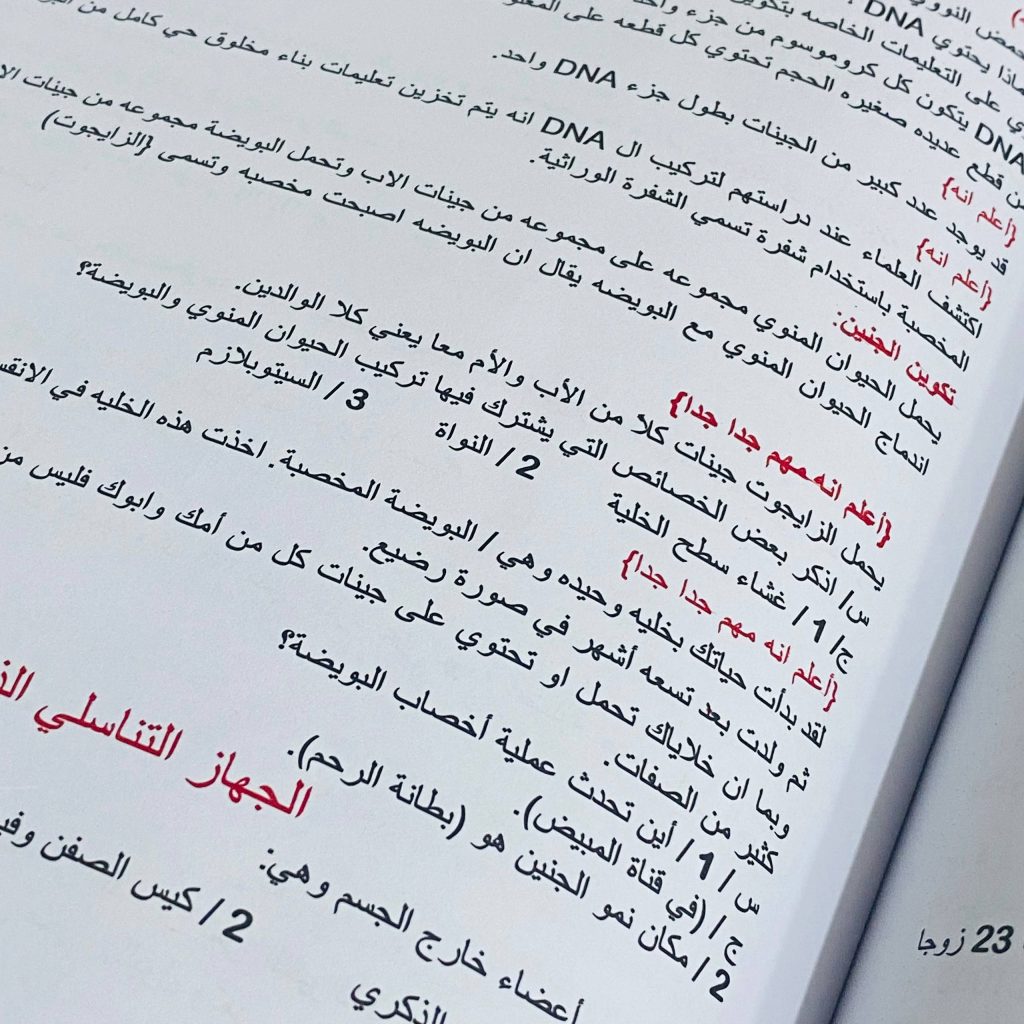 حمض النووي
ماذا يحتوي DNA
ي على التعليمات الخاصه بتكوين
DNA يتكون كل كروموسوم من جزء واحد
من قطع عديده صغيره الحجم تحتوي كل قطعه على
{أعلم انه}
قد يوجد عدد كبير من الجينات بطول جزء DNA واحد.
{أعلم انه}
اكتشف العلماء عند دراستهم لتركيب ال DNA انه يتم تخزين تعليمات بناء مخلوق حي كامل من
المخصبة باستخدام شفرة تسمي الشفرة الوراثية.
تكوين الجنين:
يحمل الحيوان المنوي مجموعه على مجموعه من جينات الاب وتحمل البويضة مجموعه من جينات الا
اندماج الحيوان المنوي مع البويضه يقال ان البويضه اصبحت مخصبه وتسمى {الزايجوت)
{أعلم انه مهم جدا جدا}
يحمل الزايجوت جينات كلا من الأب والأم معا يعني كلا الوالدين.
س/ انكر بعض الخصائص التي يشترك فيها تركيب الحيوان المنوي والبويضة؟
ج/ 1 / غشاء سطح الخلية 2 / النواة 3 / السيتوبلازم
{أعلم انه مهم جدا جدا}
لقد بدأت حياتك بخليه وحيده وهي / البويضة المخصبة. اخذت هذه الخليه في الانقس
ثم ولدت بعد تسعه أشهر في صورة رضيع.
وبما ان خلاياك تحمل او تحتوي على جينات كل من أمك وابوك فليس من
كثير من الصفات.
س / 1 / أين تحدث عملية أخصاب البويضة؟
ج / (في قناة المبيض).
2 / مكان نمو الجنين هو (بطانة الرحم).
الجهاز التناسلي الذ
أعضاء خارج الجسم وهي:
الذكري 2 / كيس الصفن وفي
23 زوجا